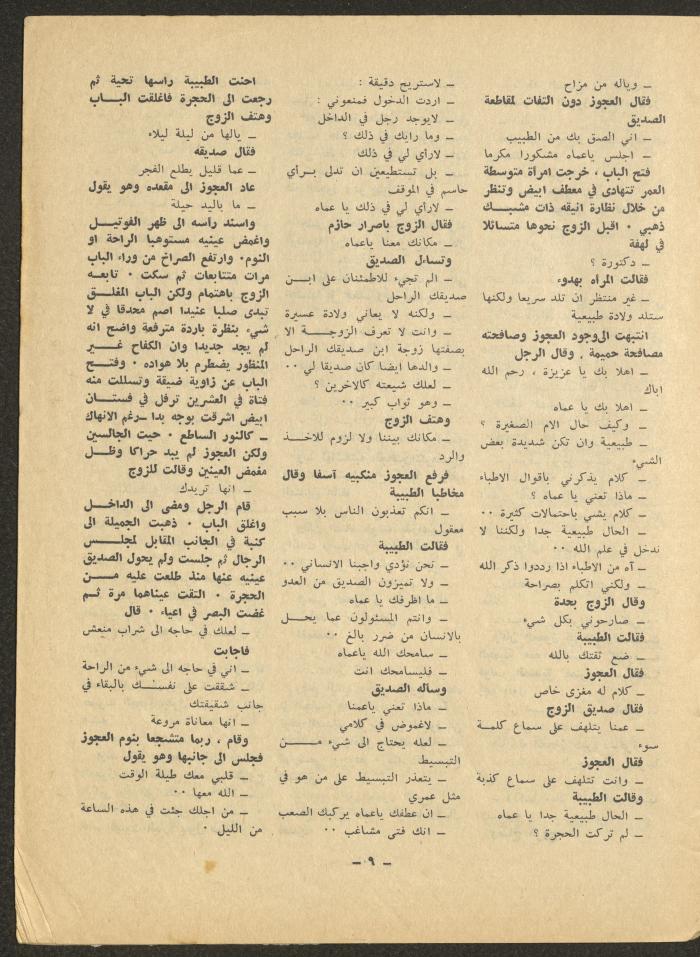 ـ وياله من مزاح
فقال العجوز دون التفات لمقاطعة
الصديق
ـ اني الصق بك من الطبيب
ـ اجلس ياعماه مشكورا مكرما
فتح الباب ، خرجت امرأة متوسطة
العمر تتهادى في معطف ابيض وتنظر
من خلال نظارة انيقه ذات مشبــك
ذهبي ٠ اقبل الزوج نحوها متسائلا
في لهفة
ـ دكتورة ؟
فقالت المرأه بهدوء
ـ غير منتظر ان تلد سريعا ولكنها
ستلد ولادة طبيعية
انتبهت الى وجود العجوز وصافحته
مصافحة حميمة . وقال الرجل
ـ اهلا بك يا عزيزة ، رحم الله
اباك
ـ اهلا بك يا عماه
ـ وكيف حال الام الصغيرة ؟
ـ طبيعية وان تكن شديدة بعض
الشيء
ـ كلام يذكرني باقوال الاطباء
ـ ماذا تعني يا عماه ؟
ـ كلام يشي باحتمالات كثيرة ٠٠
ـ الحال طبيعية جدا ولكننا لا
ندخل في علم الله ٠٠
ـ آه من الاطباء اذا رددوا ذكر الله
ـ ولكني اتكلم بصراحة
وقال الزوج بحدة
ـ صارحوني بكل شيء
فقالت الطبيبة
ـ ضع ثقتك بالله
فقال العجوز
ـ كلام له مغزى خاص
فقال صديق الزوج
ـ عمنا يتلهف على سماع كلمـة
سوء
فقال العجوز
ـ وانت تتلهف على سماع كذبة
وقالت الطبيبة
ـ الحال طبيعية جدا يا عماه
ـ لم تركت الحجرة ؟
ـ لاستريح دقيقة :
ـ اردت الدخول فمنعوني :
ـ لايوجد رجل في الداخل
ـ وما رايك في ذلك ؟
ـ لاراي لي في ذلك
ـ بل تستطيعين ان تدلى بـرأي
حاسم في الموقف
ـ لاراي لي في ذلك يا عماه
فقال الزوج باصرار حازم
ـ مكانك معنا ياعماه
وتساءل الصديق
ـ الم تجيء للاطمئنان على ابـن
صديقك الراحل
ـ ولكنه لا يعاني ولادة عسيرة
ـ وانت لا تعرف الزوجـــة الا
بصفتها زوجة ابن صديقك الراحل
ـ والدها ايضا كان صديقا لي ٠٠
ـ لعلك شيعته كالاخرين ؟
ـ وهو ثواب كبير ٠٠
وهتف الزوج
ـ مكانك بيننا ولا لزوم للاخـذ
والرد
فرفع العجوز منكبيه آسفا وقال
مخاطبا الطبيبة
ـ انكم تعذبون الناس بلا سبب
معقول
فقالت الطبيبة
ـ نحن نؤدي واجبنا الانساني ٠٠
ـ ولا تميزون الصديق من العدو
ـ ما اظرفك يا عماه
ـ وانتم المسئولون عما يحـــل
بالانسان من ضرر بالغ ٠٠
ـ سامحك الله ياعماه
ـ فليسامحك انت
وساله الصديق
ـ ماذا تعني ياعمنا
ـ لاغموض في كلامي
ـ لعله يحتاج الى شيء مــــن
التبسيط
ـ يتعذر التبسيط على من هو في
مثل عمري
ـ ان عطفك ياعماه يركبك الصعب
ـ انك فتى مشاغب ٠٠
احنت الطبيبة راسها تحية ثم
رجعت الى الحجرة فاغلقت البــاب
وهتف الزوج
ـ يالها من ليلة ليلاء
فقال صديقه
ـ عما قليل يطلع الفجر
عاد العجوز الى مقعده وهو يقول
ـ ما باليد حيلة
واسند راسه الى ظهر الفوتيــل
واغمض عينيه مستوهبا الراحة او
النوم٠ وارتفع الصراخ من وراء الباب
مرات متتابعات ثم سكت ٠ تابعـه
الزوج باهتمام ولكن الباب المغلــق
تبدى صلبا عنيدا اصم محدقا في لا
شيء بنظرة باردة مترفعة واضح انه
لم يجد جديدا وان الكفاح غــــير
المنظور يضطرم بلا هواده ٠ وفتــح
الباب عن زاوية ضيقة وتسللت منه
فتاة في العشرين ترفل في فستــان
ابيض اشرقت بوجه بدا ـ رغم الانهاك
ـ كالنور الساطع ٠ حيت الجالسين
ولكن العجوز لم يبد حراكا وظــل
مغمض العينين وقالت للزوج
ـ انها تريدك
قام الرجل ومضى الى الداخــل
واغلق الباب ٠ ذهبت الجميلة الى
كنبة في الجانب المقابل لمجلــس
الرجال ثم جلست ولم يحول الصديق
عينيه عنها منذ طلعت عليه مــن
الحجرة ٠ التقت عيناهما مرة ثــم
غضت البصر في اعياء ٠ قال
ـ لعلك في حاجه الى شراب منعش
فاجابت
ـ اني في حاجه الى شيء من الراحة
ـ شققت على نفســك بالبقاء في
جانب شقيقتك
ـ انها معاناة مروعة
وقام ، ربما متشجعا بنوم العجوز
فجلس الى جانبها وهو يقول
ـ قلبي معك طيلة الوقت
ـ الله معها ٠٠
ـ من اجلك جئت في هذه الساعة
من الليل ٠
ـ ٩ ـ